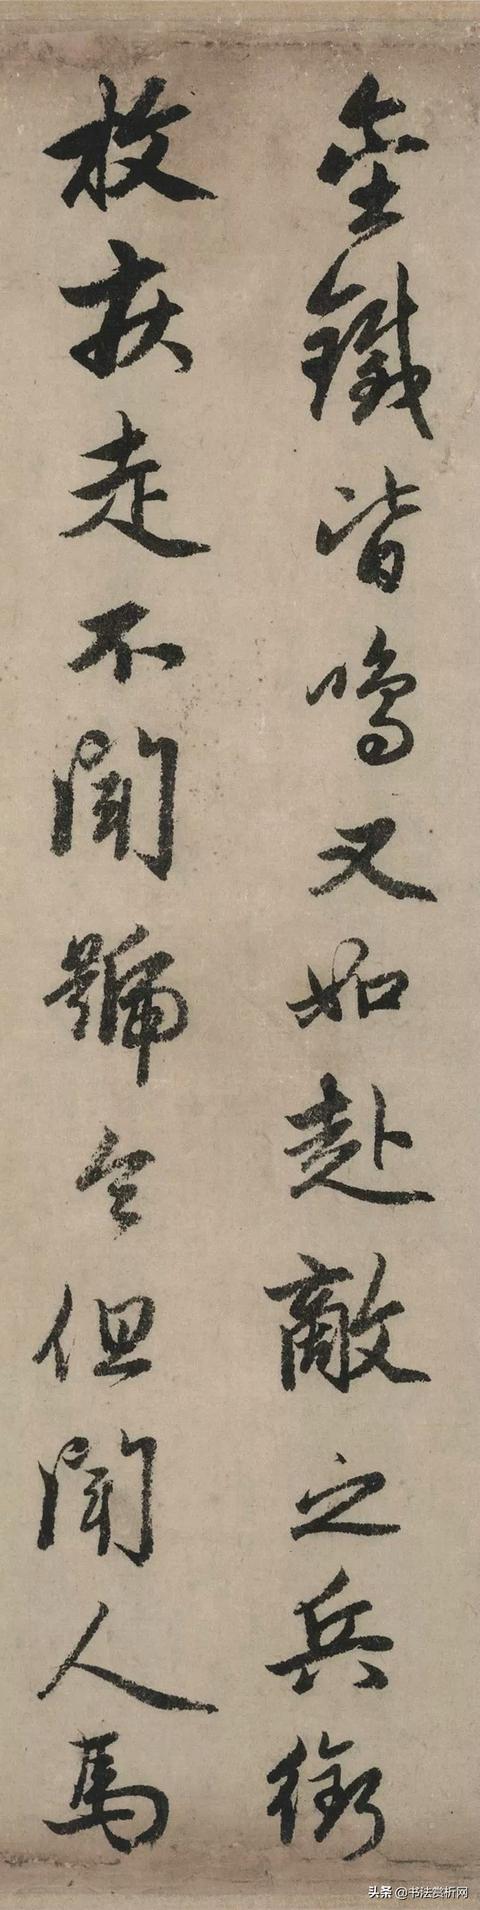 金鐵皆鳴又如赴敵之兵銜
枚疾走不聞號令但聞人馬
头条 @书法赏析网